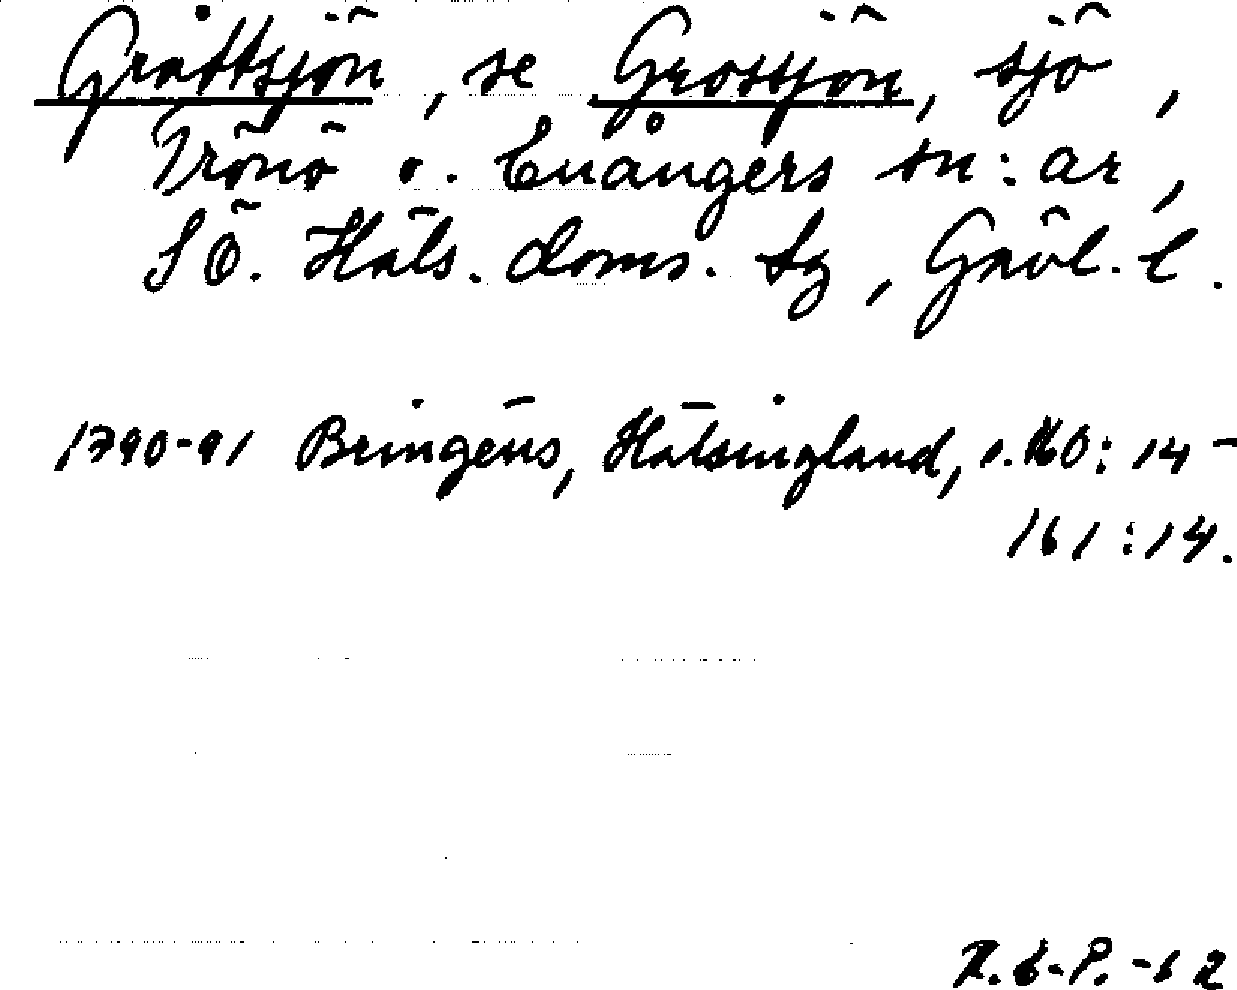 Gråttsjön, se Grossjön, sjö,
Trönö o. Enångers sn:ar,
SÖ. Häls. doms. sg, Gävl. l.
1790-91 Bringéus, Hälsingland, s. 160:14-
161:14.
E.-P. -62